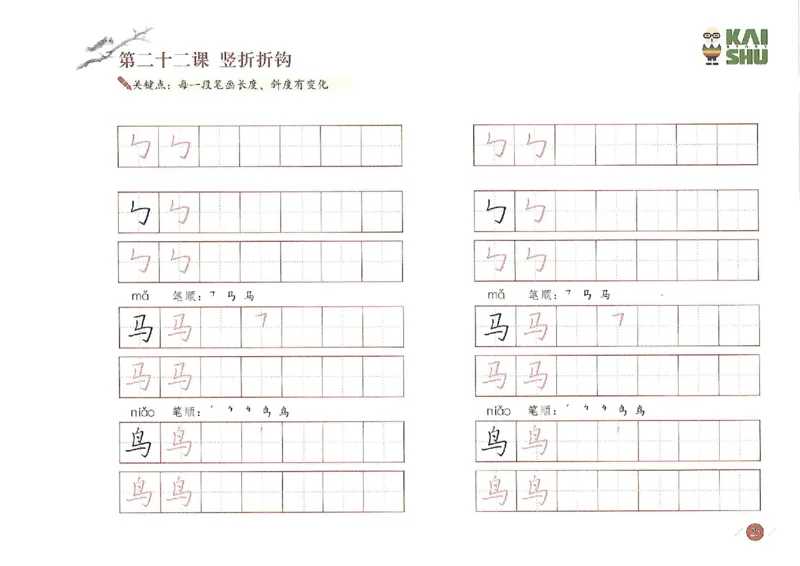 第二十二课 竖折折钩
KAI
SHU
关键点：每一段笔画长度、斜度有变化
ㄅ ㄅ
ㄅ ㄅ
ㄅ ㄅ
mǎ 笔顺：㇕ 马
马 马 ㇕
马 马
niǎo 笔顺： 鸟
鸟 鸟
鸟 鸟
ㄅ ㄅ
ㄅ ㄅ
ㄅ ㄅ
mǎ 笔顺：㇕ 马
马 马 ㇕
马 马
niǎo 笔顺： 鸟
鸟 鸟
鸟 鸟
25